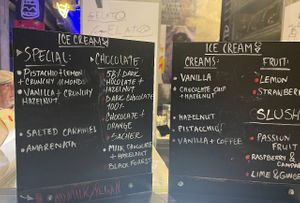 GELATO
ICE CREAMS
SPECIAL:
PISTACHIO + LEMON
+ CRUNCHY ALMONDS
VANILLA + CRUNCHY
HAZELNUT
SALTED CARAMEL
AMARENATA
CHOCOLATE
58% DARK
CHOCOLATE +
HAZELNUT
DARK CHOCOLATE
100%
CHOCOLATE +
ORANGE
SACHER
MILK CHOCOLATE
+ HAZELNUT
BLACK FOREST
ICE CREAMS
CREAMS:
VANILLA
CHOCOLATE CHIP
+ HAZELNUT
HAZELNUT
PISTACCHIO
VANILLA + COFFEE
FRUIT:
LEMON
STRAWBER
SLUSH
PASSION
FRUIT
RASPBERRY &
LIME & GINGE